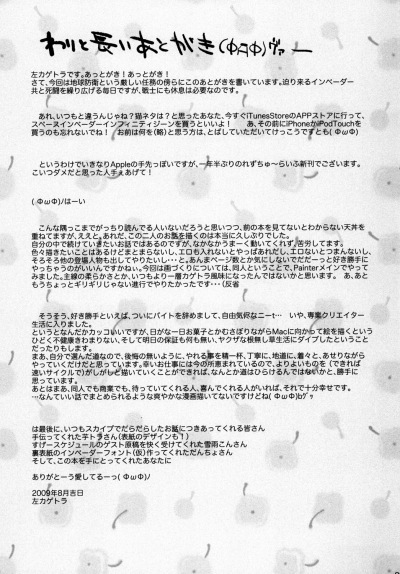 わりと長いあとがき(ΦДΦ)ヴァー
左カゲトラです。あっとがき！あっとがき！
さて、今回は地球防衛という厳しい任務の傍らにこのあとがきを書いています。迫り来るインベーダー
共と死闘を繰り広げる毎日ですが、戦士にも休息は必要なのです。
あれ、いつもと違うんじゃね？猫ネタは？と思ったあなた、今すぐiTunesStoreのAPPストアに行って、
スペースインベーダーインフィニティジーンを買うといいよ！　あ、その前にiPhoneかiPodTouchを
買うのも忘れないでね！ お前は何を(略)と思う方は、とばしていただいてけっこうですとも(ΦωΦ)
というわけでいきなりAppleの手先っぽいですが、一年半ぶりのれずちゅ～らいふ新刊でございます。
こいつダメだと思った人手ぇあげて！
(.ΦωΦ)/はーい
こんな隅っこまでがっちり読んでる人いないだろうと思いつつ、前の本を見てないとわからない天丼を
重ねてますが、ええと。あれだ、この二人のお話を描くのは本当に久しぶりでした。
自分の中で続けていきたいお話ではあるのですが、なかなかうまーく動いてくれず、苦労してます。
色々描きたいことはあるけどまとまらないし、エロも入れないとやっぱあれだし、エロないとつまんないし、
そろそろ他の登場人物も出してやりたいし・・・と、あんまページ数とか気にしないでだだーっと好き勝手に
やっちゃうのがいいんですかねぃ。今回は画づくりについては、同人ということで、Painterメインでやって
みました。主線の柔らかさとか、いつもより一層カゲトラ風味になってないんではないかと思います。 あ、あと
もうちょっとギリギリじゃない進行でやりたかったです・・・(反省
そうそう、好き勝手といえば、ついにバイトを辞めまして、自由気侭なニート…　いや、専業クリエイター
生活に入りました。
というとなんだかカッコいいですが、日がな一日お菓子とかむさぼりながらMacに向かって絵を描くという
ひどく不健康きわまりない、そして明日の保証も何も無い、ヤクザな根無し草生活にダイブしたということ
だったりもします。
まあ、自分で選んだ道なので、後悔の無いように、やれる事を精一杯、丁寧に、地道に、着々と、あせりながら
やっていくだけだと思っています。幸いお仕事には今の所恵まれているので、よりよいものを(できれば
速いサイクルで)がしがしと描いていくことができれば、なんとか道はひらけるんではないかと、勝手に
思っています。
あとはまあ、同人でも商業でも、待っていてくれる人、喜んでくれる人がいれば、それで十分幸せです。
…なんていい話でまとめられるような爽やかな漫画描いてないですけどね(ΦωΦ)bｸﾞｯ
は最後に、いつもスカイプでだらだらしたお話につきあってくれる皆さん
手伝ってくれた千トラさん(表紙のデザインも！)
すげースケジュールのゲスト原稿を快く受けてくれた雪雨こんさん
裏表紙のインベーダーフォント(仮)作ってくれただんちょさん
そして、この本を手にとってくれたあなたに
ありがとーう愛してるーっ(ΦωΦ)ﾉ
2009年8月吉日
左カゲトラ